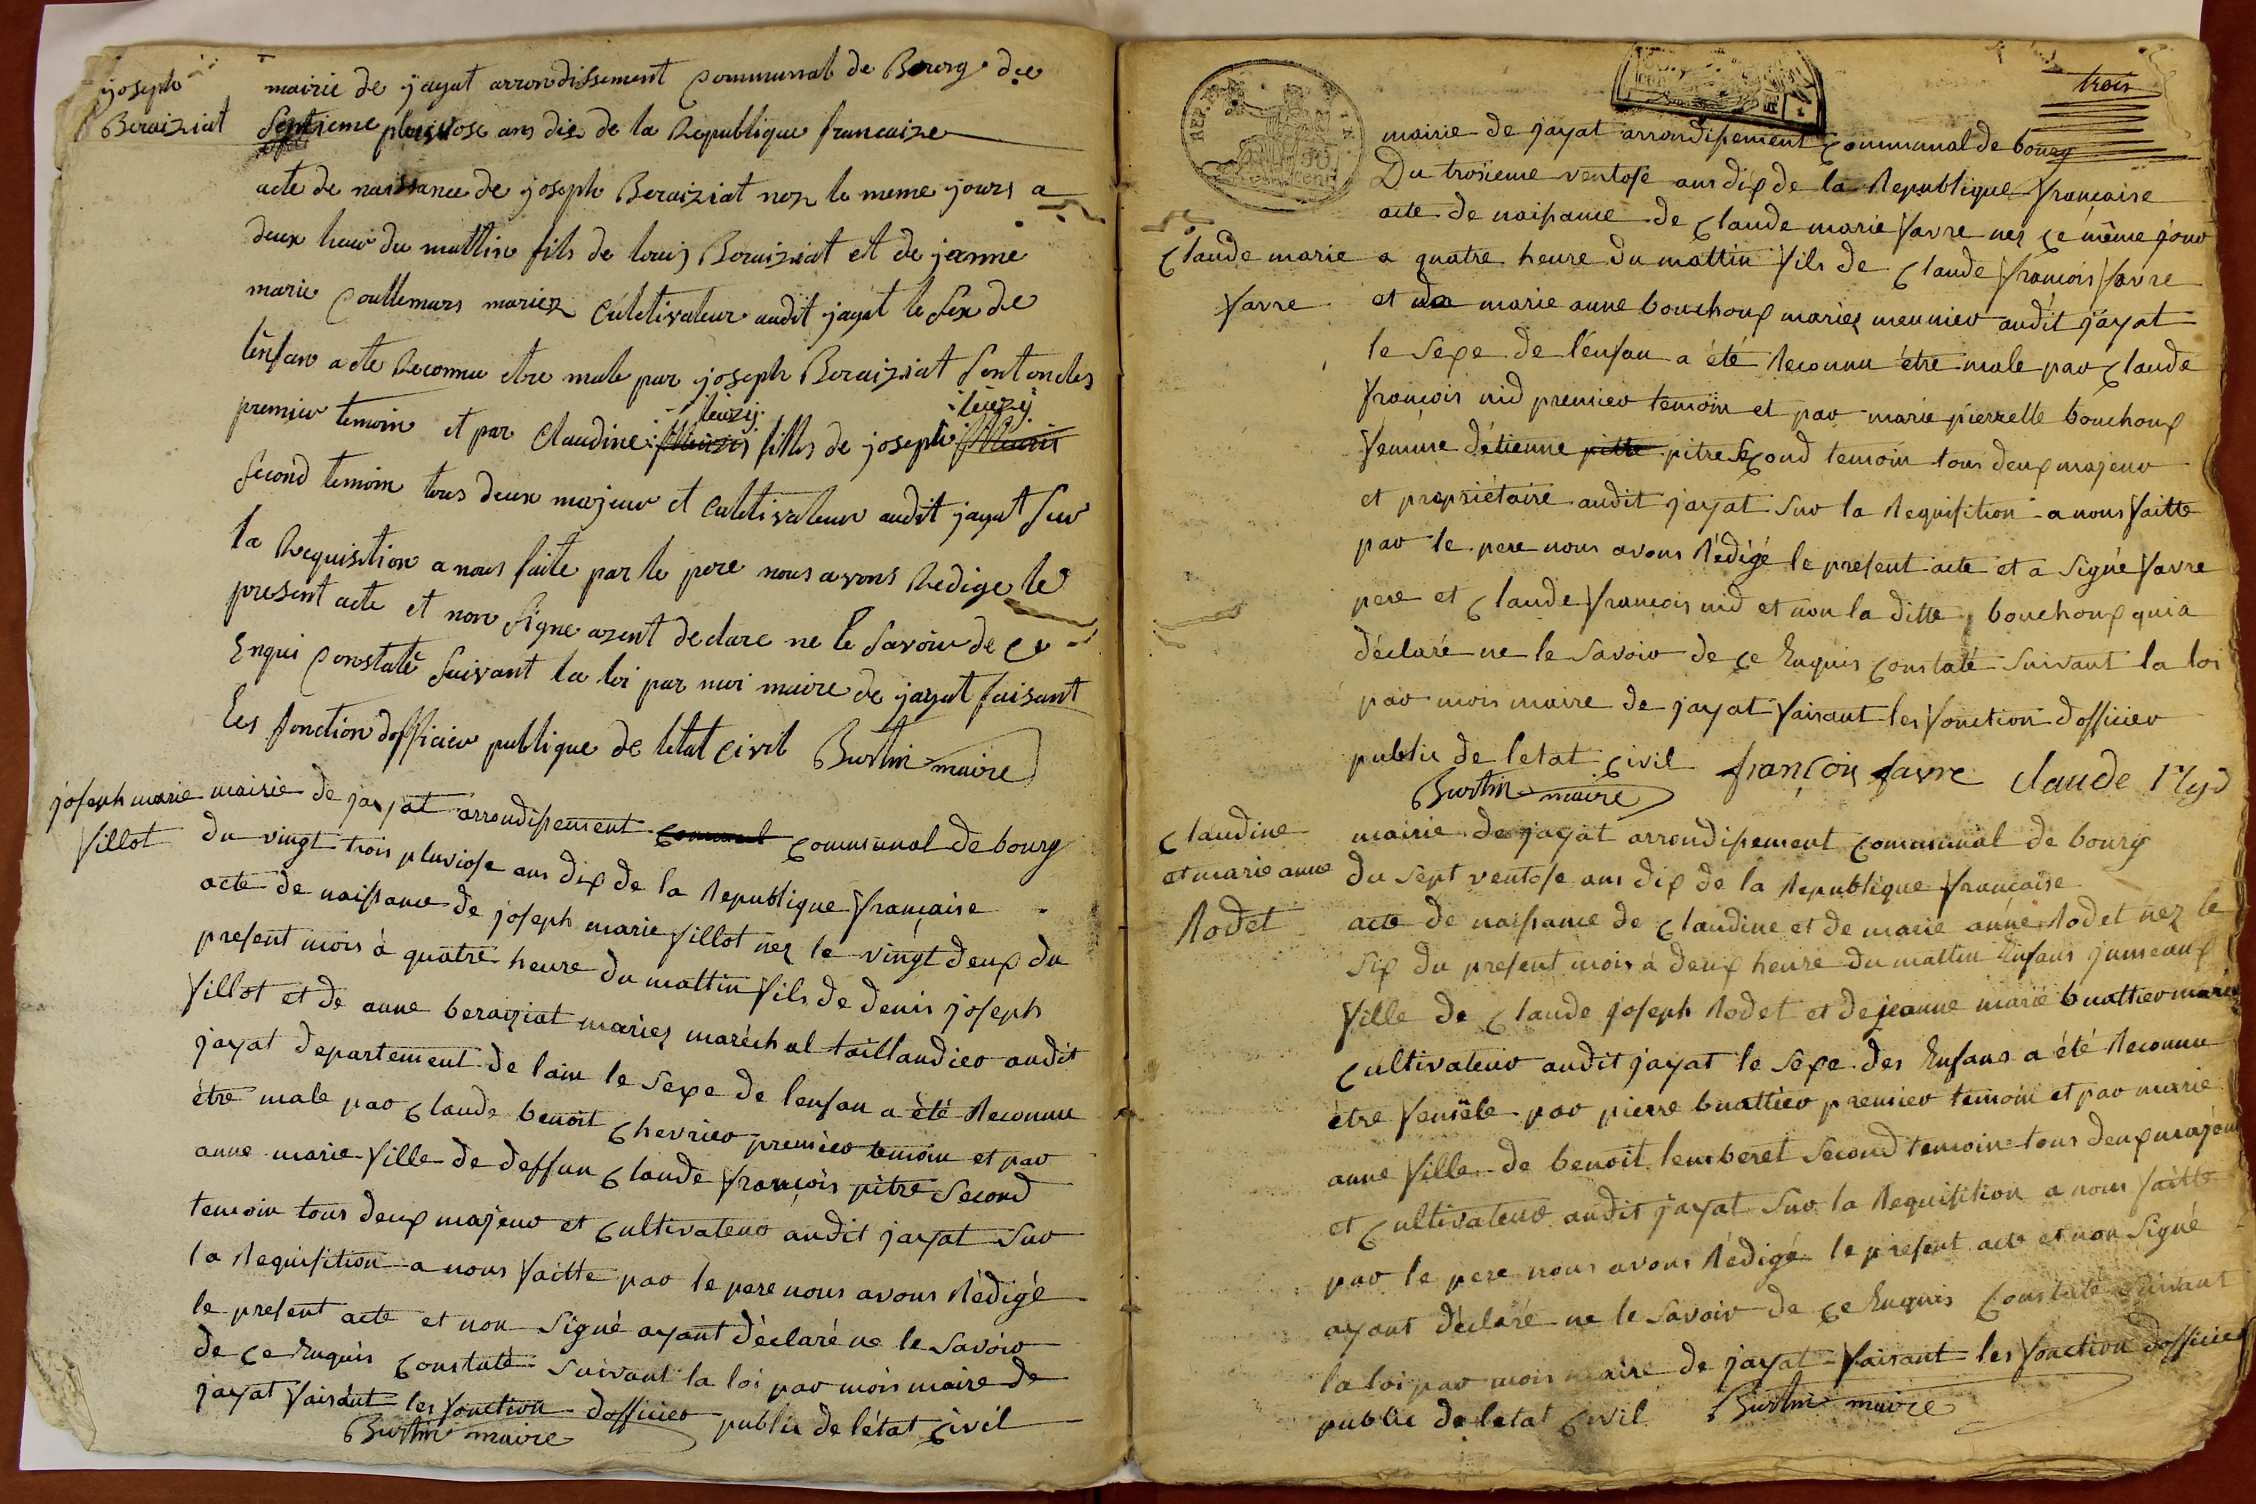 joseph
Beraiziat
mairie de jayat arrondissement Communal de Bourg du
Septieme pluviose ans dix de la Republique francaize
acte de naissance de joseph Beraiziat nez le meme jours a
deux heur du mattin fils de louis Beraiziat et de jeanne
marie Coullemars mariez Cultivateur audit jayat le Sex de
l'enfan a ete Reconnu etre male par joseph Beraiziat Sont oncles
leuzy leuzy
premier temoin et par Claudine filles de joseph
Second temoin tous deux majeur et Cultivateur audit jayat Sur
la Requisition a nous faite par le pere nous avons Redige le
present acte et non Signe azent declare ne le Savoir de Ce
Enqui Constaté Suivant la loi par moi maire de jayat faisant
les fonction dofficier publique de letat Civil Burtin maire
joseph marie
fillot
mairie de jayat arrondissement communal de bourg
du vingt trois pluviose ans dix de la Republique française
acte de naissance de joseph marie fillot nez le vingt deux du
present mois à quatre heure du mattin fils de denis joseph
fillot et de anne beraiziat mariez maréchal taillandier audit
jayat departement de lain le sexe de lenfan a èté Reconnu
être male par Claude benoit Chevrier premier temoin et par
anne marie fille de deffun Claude françois pitre Second
temoin tous deux majeur et Cultivateur audit jayat Sur
la Requisition a nous faitte par le pere nous avons Rédigé
le present acte et non Signé ayant déclaré ne le Savoir
de Ce Enquis Constaté Suivant la loi par mois maire de
jayat faisant les fonction dofficier public de létat Civil
Burtin maire
trois
REP.
mairie de jayat arrondissement Communal de bourg
Du troisieme ventose ans dix de la Republique française
acte de naissance de Claude marie favre nez ce même jour
Claude marie
favre
a quatre heure du mattin fils de Claude françois favre
et de marie anne bouchoux mariez meunier audit jayat
le Sexe de l'enfan a été Reconnu être male par Claude
françois nid premier temoin et par marie pierrette bouchoux
femme détienne pitre pitre Second temoin tous deux majeur
et propriétaire audit jayat Sur la Requisition a nous faitte
par le pere nous avons Rédigé le present acte et a Signé favre
pere et Claude françois nid et non la ditte bouchoux qui a
déclaré ne le Savoir de Ce Enquis Constaté Suivant la loi
par mois maire de jayat faisant les fonction dofficier
public de letat Civil françois favre Claude Nyd
Burtin maire
Claudine
et marie anne
Rodet
mairie de jayat arrondissement Communal de bourg
du Sept ventose ans dix de la Republique française
acte de naissance de Claudine et de marie anne Rodet nez le
Six du present mois à deux heure du mattin Enfans jumeaux
fille de Claude joseph Rodet et de jeanne marie buattier mariez
Cultivateur audit jayat le Sexe des Enfans a été Reconnu
être femèle par pierre buattier premier temoin et par marie
anne fille de benoit lemberet Second temoin tous deux majeur
et Cultivateur audit jayat Sur la Requisition a nous faitte
par le pere nous avons Rédigé le present acte et non Signé
ayant déclaré ne le Savoir de Ce Enquis Constaté Suivant
la loi par mois maire de jayat faisant les fonction dofficier
public de letat Civil Burtin maire